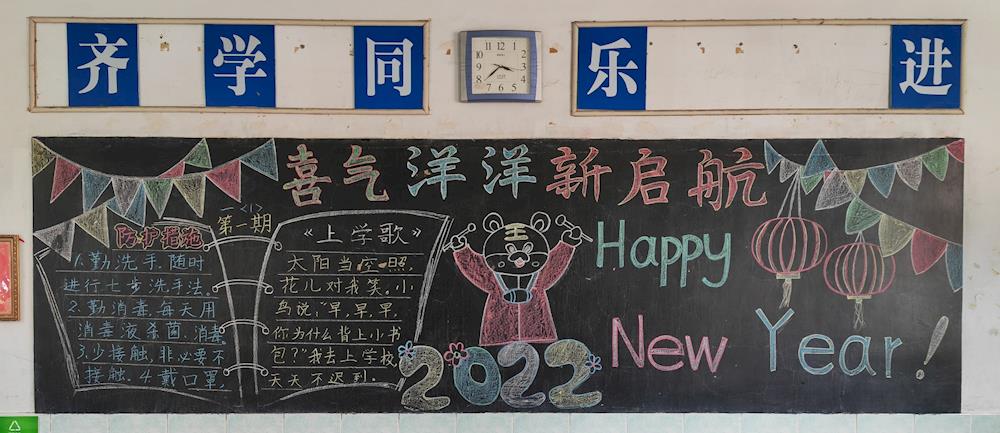 齐 学 同 乐 进
12
11 1
10 2
9 3
8 4
7 6 5
喜气洋洋新启航
防护措施
1.勤洗手.随时
进行七步洗手法。
2.勤消毒.每天用
消毒液杀菌.消毒
3.少接触.非必要不
接触. 4.戴口罩,
<1>
第一期
《上学歌》
太阳当空照,
花儿对我笑。小
鸟说;“早,早,早,
你为什么背上小书
包?”我去上学校,
天天不迟到.
王
2022
Happy
New Year!